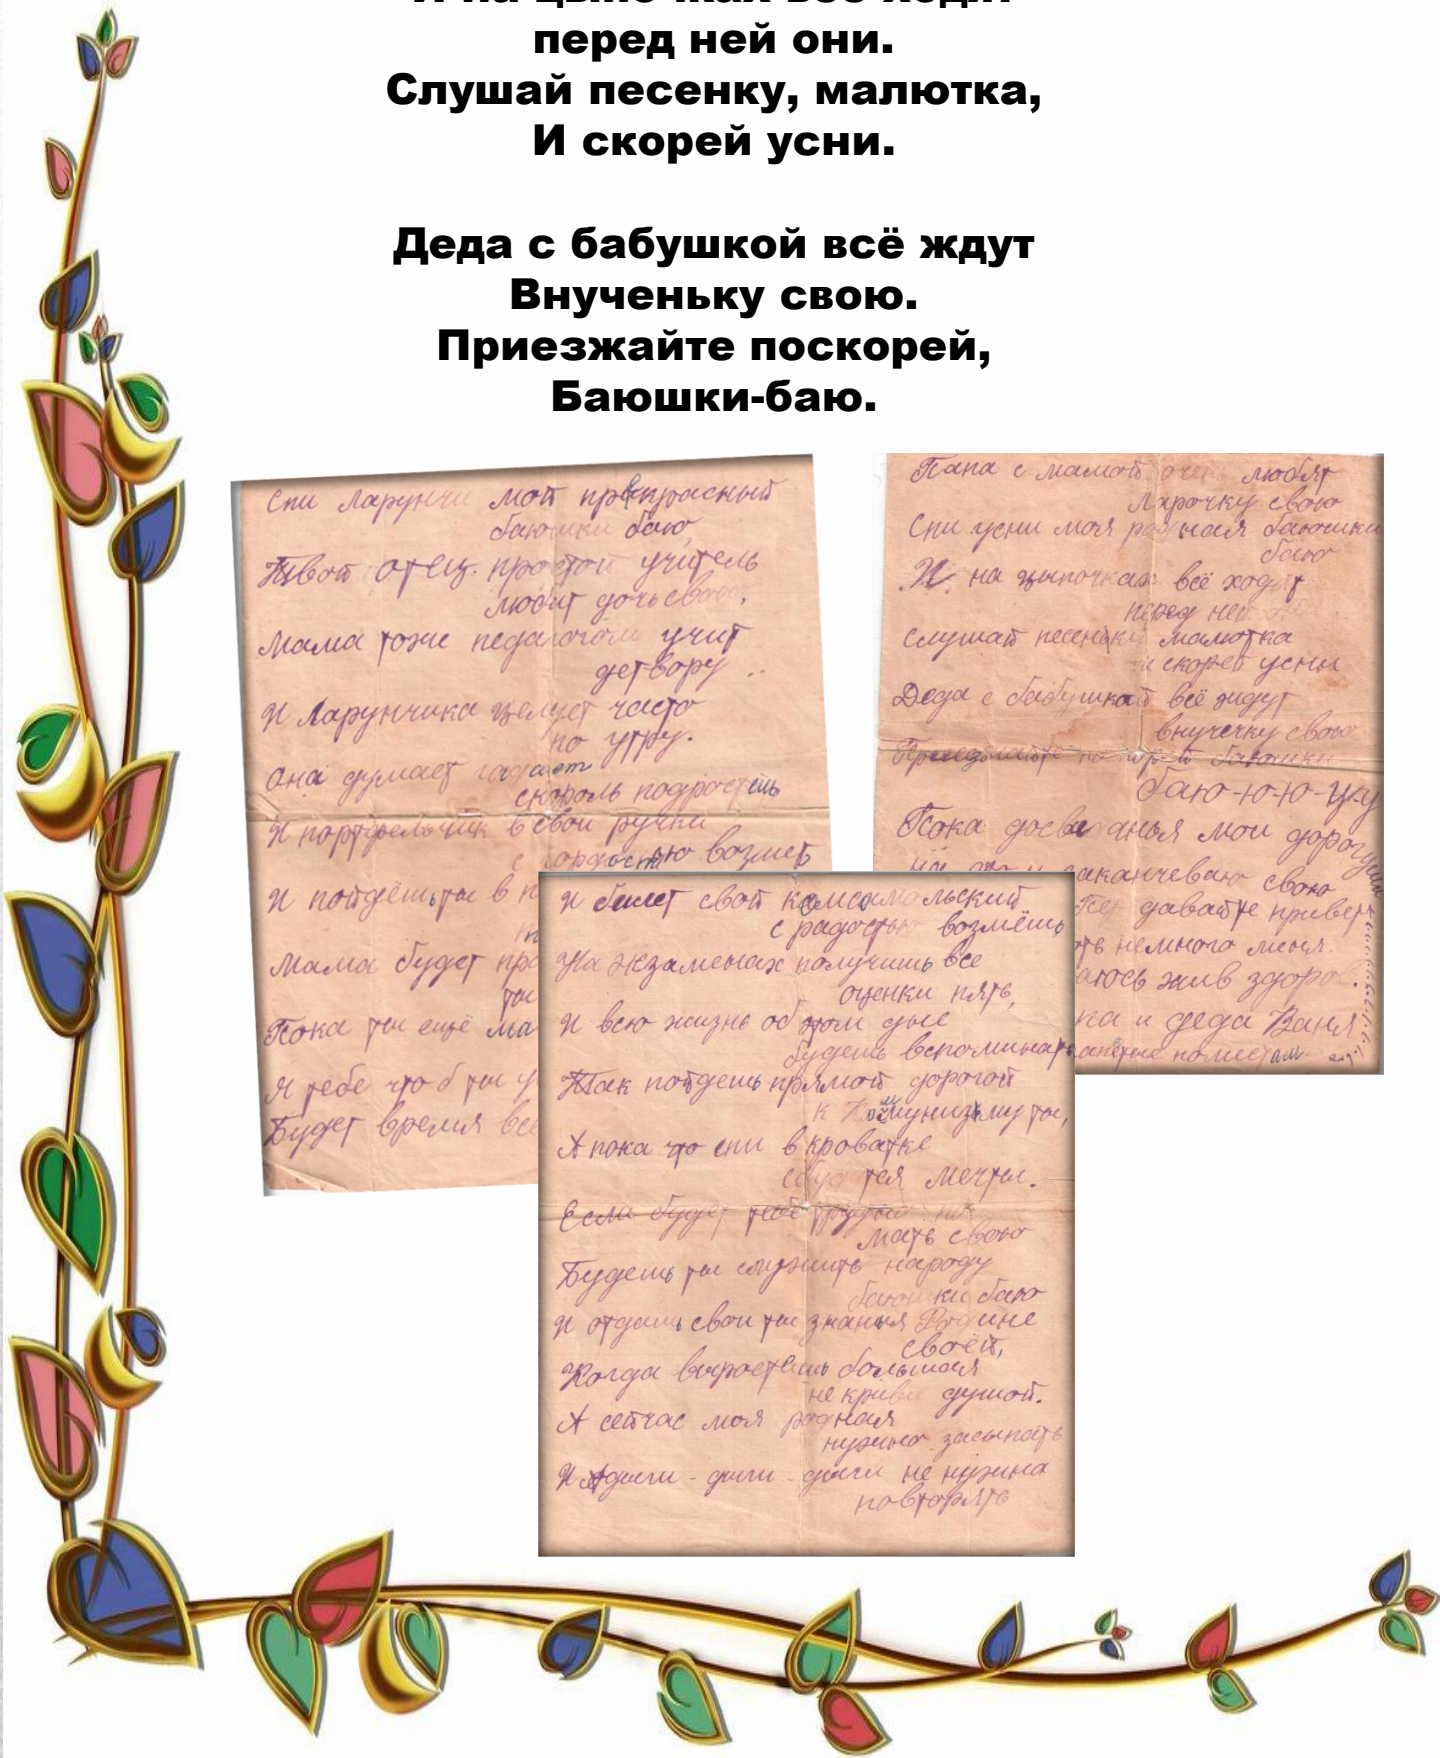 И на цыпочках всё ходят
перед ней они.
Слушай песенку, малютка,
И скорей усни.
Деда с бабушкой всё ждут
Внученьку свою.
Приезжайте поскорей,
Баюшки-баю.
Спи Ларунчи мой прекрасный
баюшки баю
Твой отец простой учитель
любит дочь свою,
Мама тоже педагогом учит
детвору
И Ларунчика целует часто
по утру.
Она думает гадает
скороль подростешь
И портфельчик в свои ручки
с гордостью возмеш
И пойдёшь ты в
Мама будет
ты
Пока ты ещё
Я тебе что б ты
Будет время все
Папа с мамой любят
Ларочку свою
Спи усни моя родная баюшки
баю
И на цыпочках всё ходят
перед ней
Слушай песенку малютка
и скорей усни
Деда с бабушкай всё ждут
внучечку свою
баюшки
баю-ю-ю-у-у
Пока досвиданья мои
заканчеваю свою
давайте привет
немного меня.
жив здоров.
и деда Ваня
И билет свой комсамольский
с радостью возмёшь
На экзаменах получишь все
оценки пять,
И всю жизнь об этом дые
будешь вспоминать
Так пойдешь прямой дорогой
к Комунизьму ты,
А пока что спи в кроватке
сбудутся мечты.
Если будет тебе трудно
мать свою
Будешь ты служить народу
баюшки баю
И отдашь свои ты знанья Родине
своёй,
Когда выростешь большая
не криви душой.
А сейчас моя родная
нужно засыпать
И не нужна
повторять